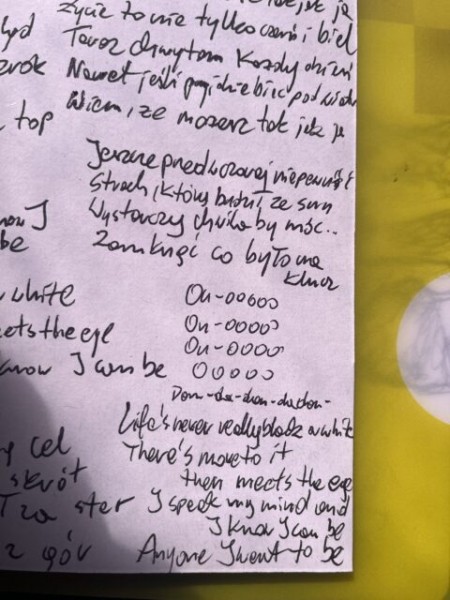 Życie to nie tylko czerń i biel
Teraz chwytam każdy dzień
Nawet jeśli pójdzie biec pod wiatr
Wiem, że możesz tak jak ja
Jeszcze przedwczoraj niepewność
Strach, który budził ze snu
Wystarczy chwila by móc..
Zamknąć co było na
klucz
Ou-ooooo
Ou-oooo
Ou-oooo
Ooooo
Life's never really black or white
There's more to it
then meets the eye
I speak my mind and
I know I can be
Anyone I want to be
top
now I
be
white
eets the eye
know I can be
cel
skrót
za ster
z gór